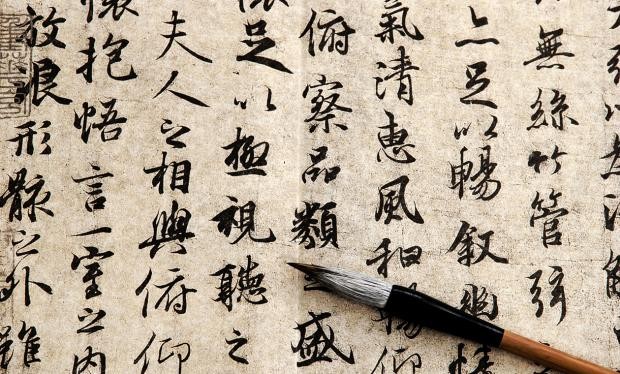 無絲竹管弦
亦足以暢叙幽情
氣清惠風和暢仰
俯察品類之盛
懷足以極視聽之
夫人之相與俯仰
懷抱悟言一室之内
放浪形骸之外雖